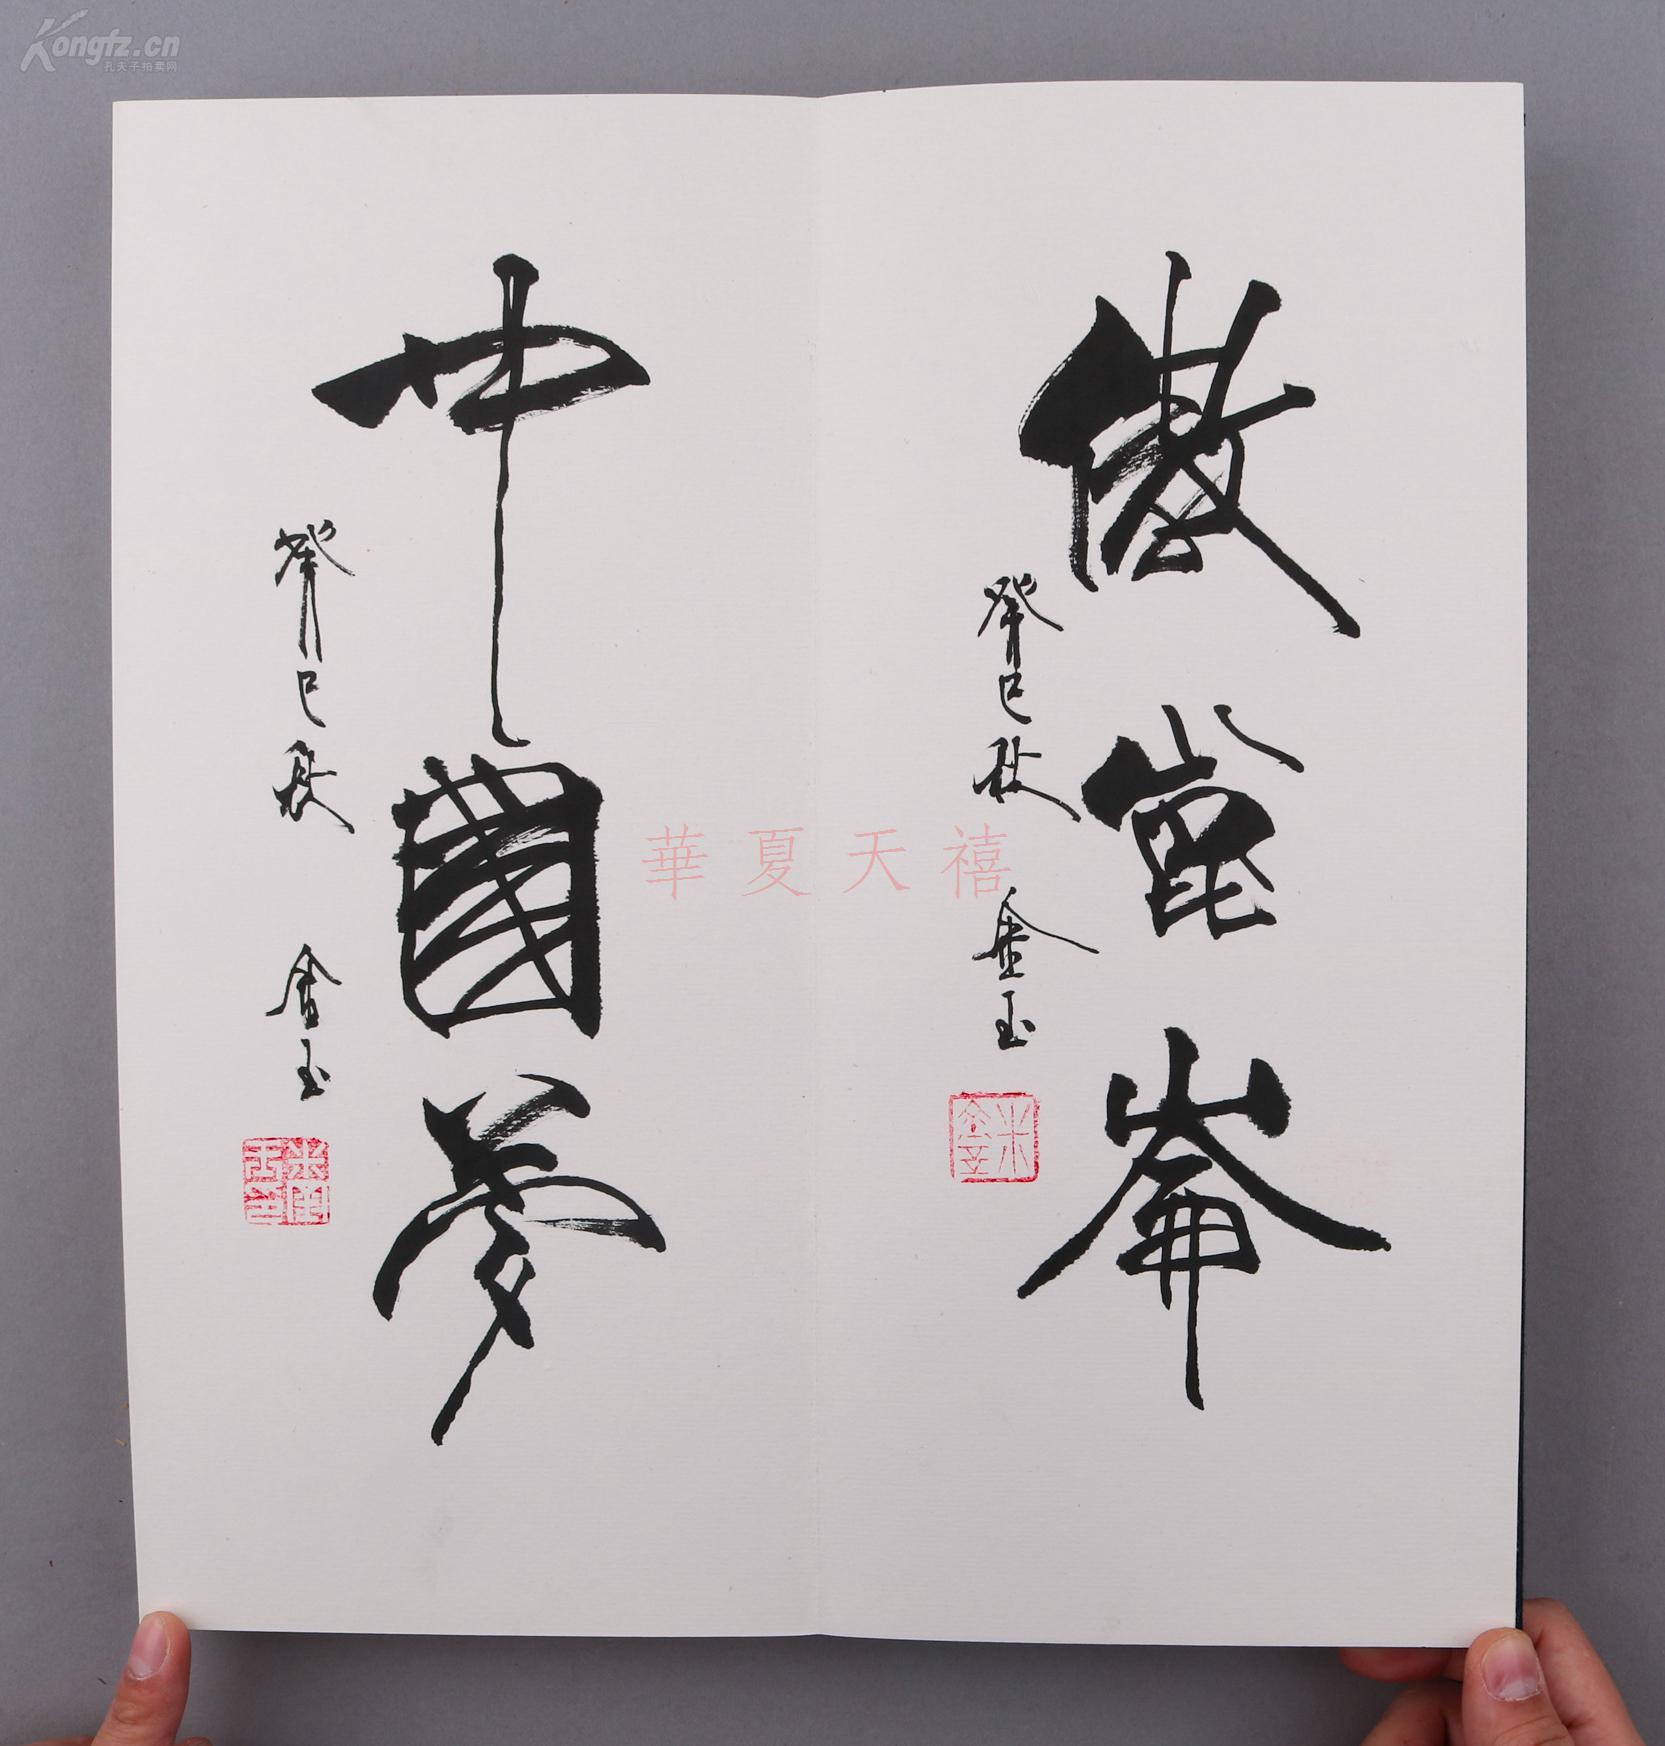 Kongfz.cn
孔夫子拍卖网
傲崑崙
癸巳秋 金玉
米金玉
中國夢
癸巳秋 金玉
華夏天禧